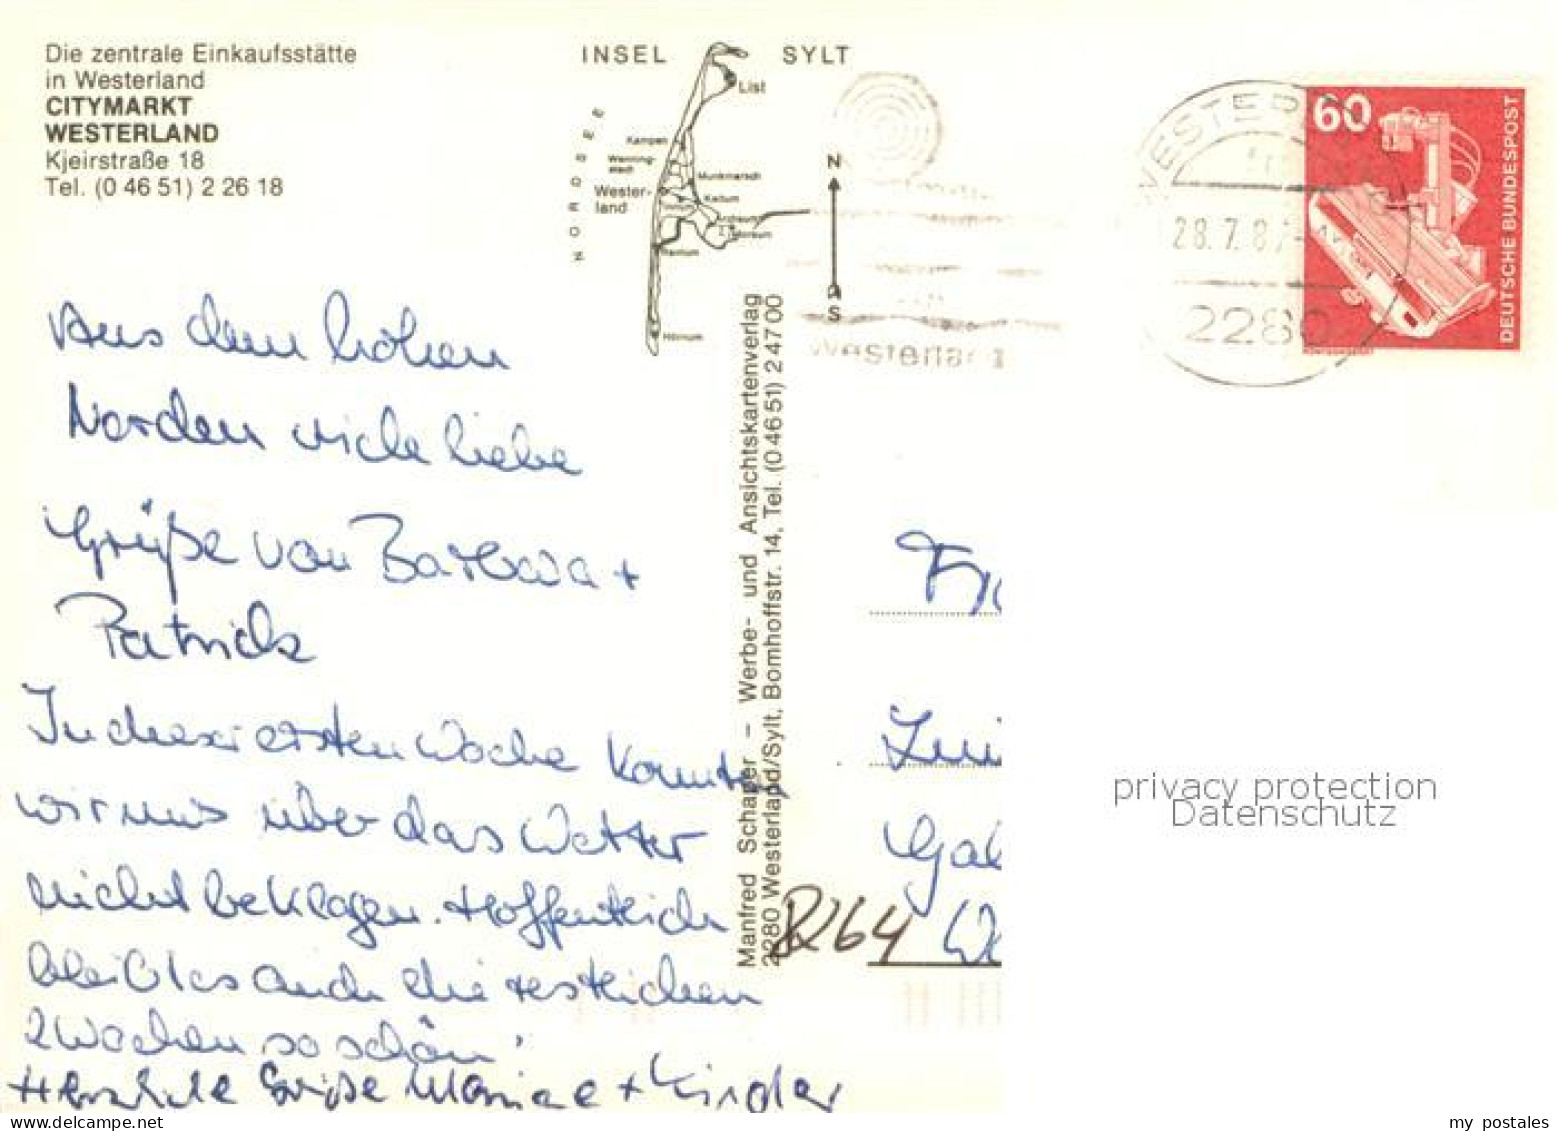 Die zentrale Einkaufsstätte
in Westerland
CITYMARKT
WESTERLAND
Kjeirstraße 18
Tel. (0 46 51) 2 26 18
INSEL SYLT
NORDSEE
List
Kampen
Wenning-
stedt
Munkmarsch
Wester-
land
Keitum
Morsum
Rantum
Hörnum
N
S
Westerland
28.7.8
2280
60
DEUTSCHE BUNDESPOST
Manfred Schaper – Werbe- und Ansichtskartenverlag
2280 Westerland/Sylt, Bomhoffstr. 14, Tel. (0 46 51) 2 47 00
Aus dem hohen
Norden viele liebe
Grüße von Barbara +
Patrick
In dieser ersten Woche konnten
wir uns über das Wetter
nicht beklagen. Hoffentlich
bleibt es auch die restlichen
2 Wochen so schön!
Herzliche Grüße + Kinder
R264
privacy protection
Datenschutz
my postales